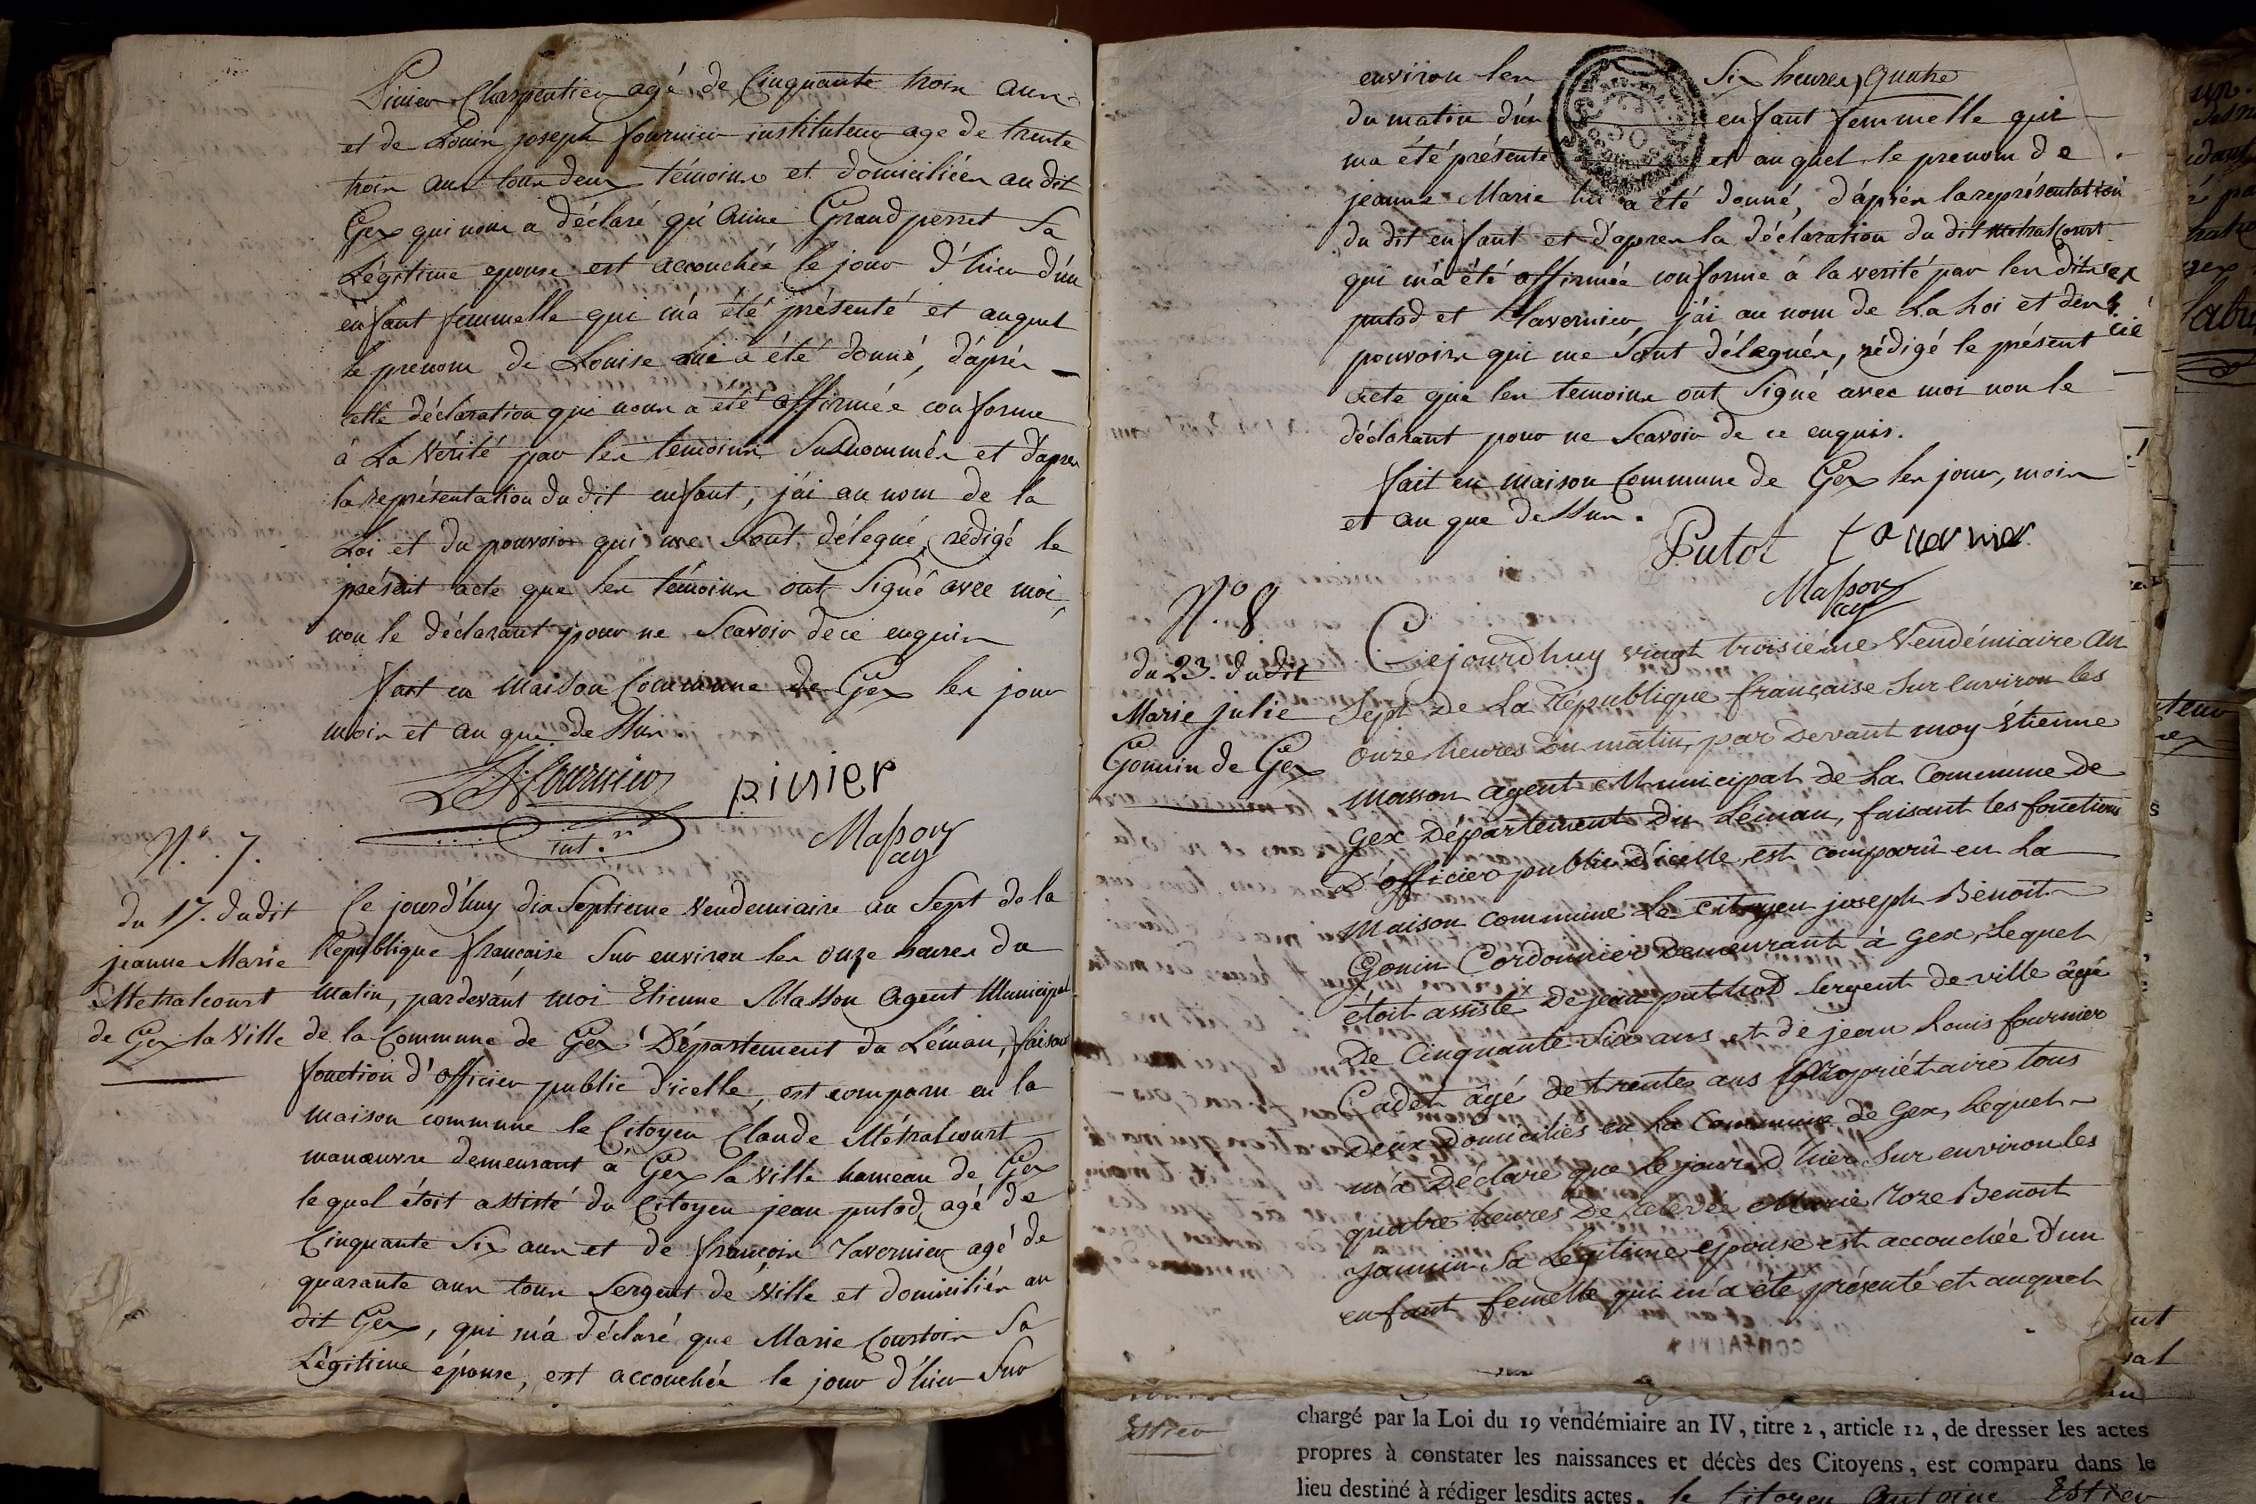 Pinier Charpentier agé de Cinquante trois ans
et de Louis joseph fournier instituteur age de trente
trois ans tous deux témoins et domiciliés au dit
Gex qui nous a déclaré qu'Anne Grandperret Sa
Légitime epouse est accouchée le jour d'hier d'un
enfant femmelle qui m'a été présenté et auquel
le prenom de Louise lui a été donné, d'après
cette déclaration qui nous a été affirmée conforme
à La Vérité par les temoins Susnommés et d'apres
la représentation du dit enfant, j'ai au nom de la
Loi et du pouvoir qui me sont délegué, rédigé le
présent acte que les témoins ont Signé avec moi,
non le déclarant pour ne Scavoir de ce enquis
fait en Maison Commune de Gex les jour
mois et an que dessus.
L. J. fournier pinier
int.r
Masson
ag
N.o 7.
du 17. dudit
jeanne Marie
Metralcourt
de Gex la Ville
Ce jourd'huy dix Septieme Vendemiaire an Sept de la
République francaise Sur environ les onze heures du
Matin, pardevant moi Etienne Masson Agent Municipal
de la Commune de Gex Département du Léman, faisant
fonction d'officier public d'icelle, est comparu en la
maison commune le Citoyen Claude Métralcourt
manœuvre demeurant à Gex la Ville hameau de Gex
le quel étoit assisté du Citoyen jean putod agé de
Cinquante Six ans et de francois Tavernier agé de
quarante ans tous Sergent de Ville et domiciliés au
dit Gex, qui m'a déclaré que Marie Courtois Sa
Légitime épouse, est accouchée le jour d'hier Sur
environ les Six heures Quatre
du matin d'un enfant femmelle qui
ma été présenté et au quel le prenom de
jeanne Marie lui a été donné, d'après la représentation
du dit enfant et d'apres la déclaration du dit Metralcourt
qui m'a été affirmée conforme à la verité par les dits
putod et Tavernier, j'ai au nom de La Loi et des
pouvoirs qui me Sont délegués, rédigé le présent
acte que les temoins ont Signé avec moi non le
déclarant pour ne Scavoir de ce enquis.
fait en maison Commune de Gex les jour, mois
et an que dessus.
Putot tavernier
Masson
ag
N.o 8
du 23. dudit
Marie julie
Gonnin de Gex
Cejourdhuy vingt troisiéme Vendémiaire an
Sept de La République française Sur environ les
onze heures du matin, par devant moy Etienne
Masson agent Municipal de La Commune de
Gex Département du Léman, faisant les fonctions
D'officier public d'icelle, est comparû en La
Maison Commune Le Citoyen joseph Benoit
Gonin Cordonnier Demeurant à Gex, Lequel
étoit assisté De jean puthod Sergent de ville âgé
De Cinquante-Six ans et de jean Louis fournier
Cadet âgé de trentes ans propriétaire tous
deux Domiciliés en La Commune de Gex, Lequel
m'a Déclaré que le jour D'hier Sur environ les
quatre heures De relevée Marie Roze Benoit
Jannin Sa Légitime epouse est accouchée D'un
enfant femelle qui m'a été présenté et auquel
chargé par la Loi du 19 vendémiaire an IV, titre 2, article 12, de dresser les actes
propres à constater les naissances et décès des Citoyens, est comparu dans le
lieu destiné à rédiger lesdits actes, le Citoyen Antoine